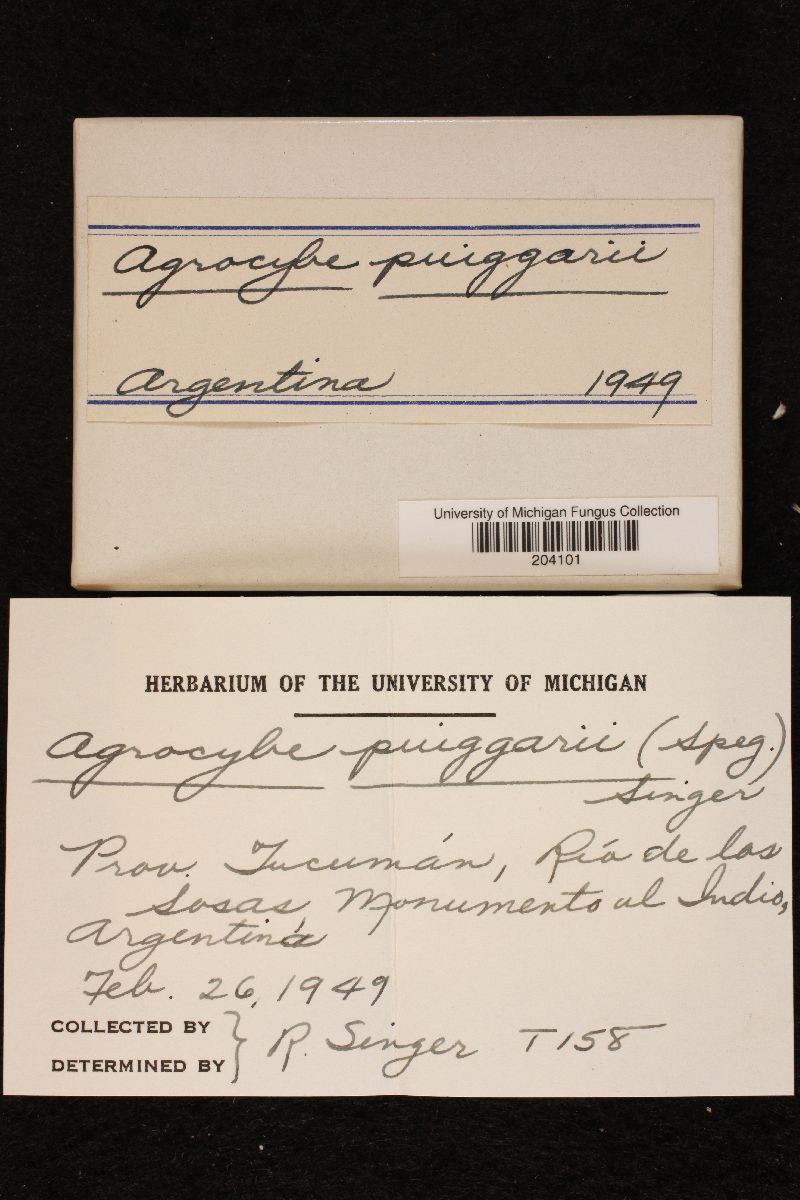 Agrocybe puiggarii
Argentina 1949
University of Michigan Fungus Collection
204101
HERBARIUM OF THE UNIVERSITY OF MICHIGAN
Agrocybe puiggarii (Speg.)
Singer
Prov. Tucumán, Río de los
Sosas, Monumento al Indio,
Argentina
Feb. 26, 1949
COLLECTED BY
DETERMINED BY } R. Singer T158